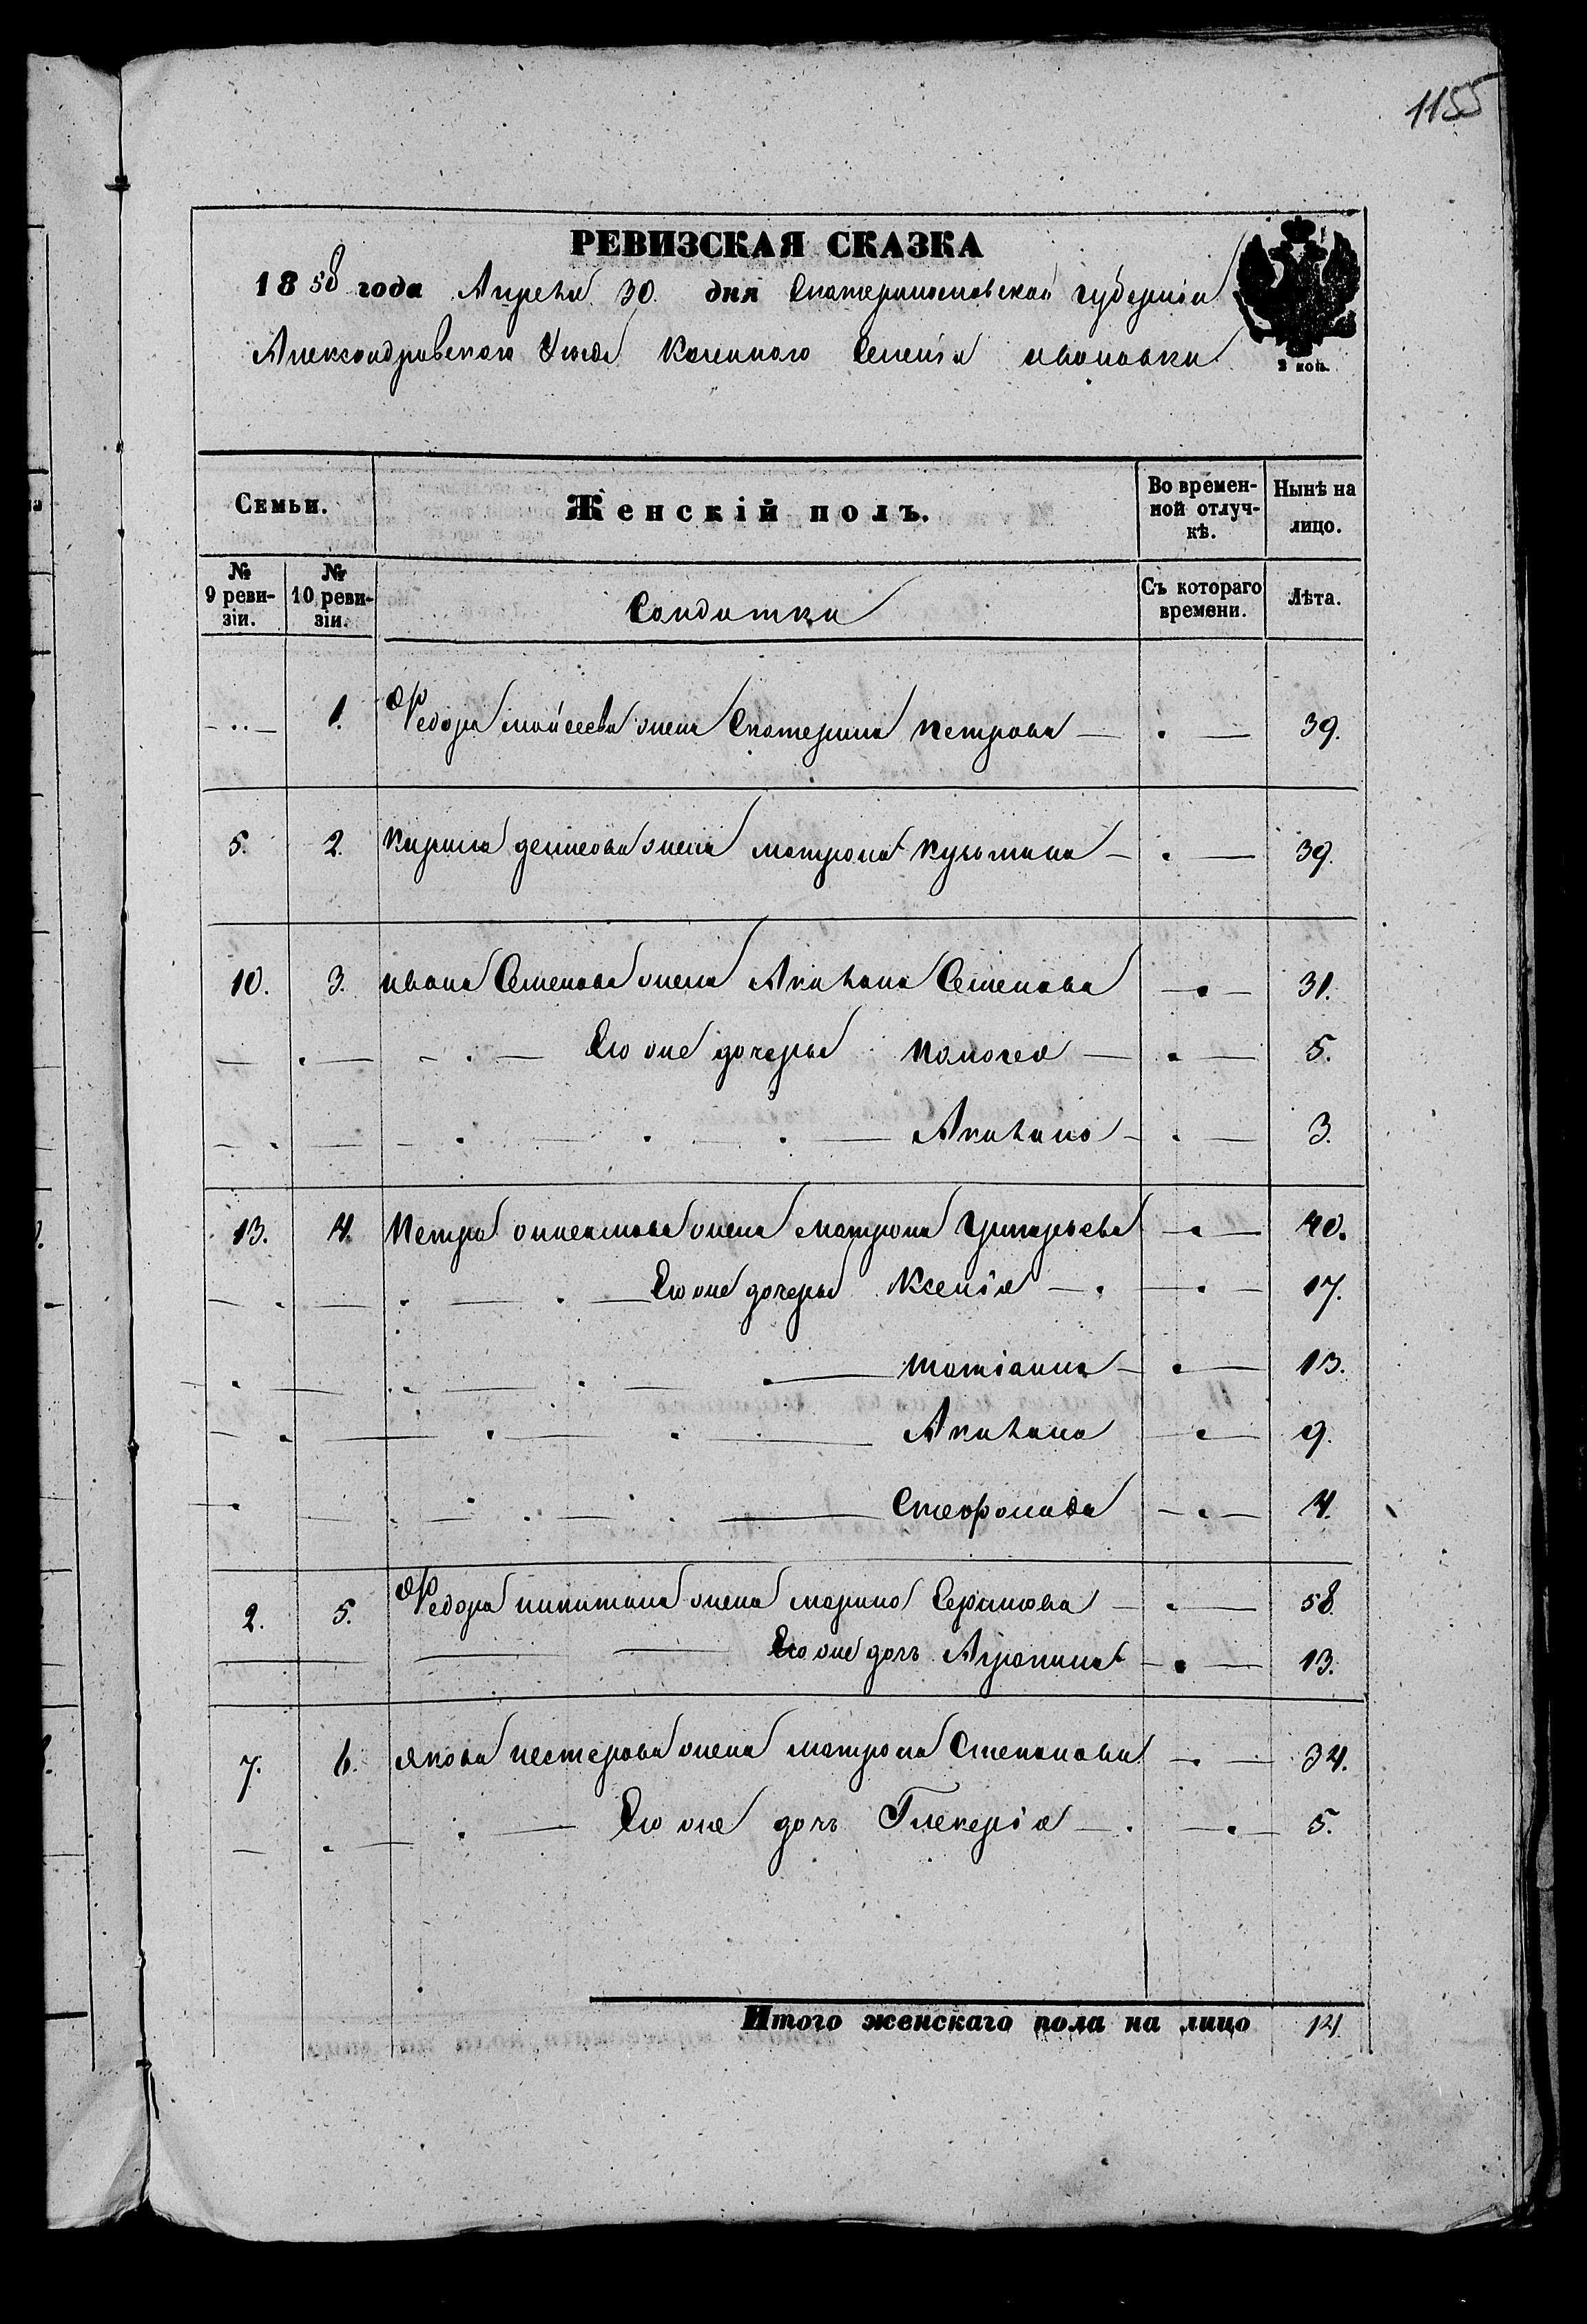 1155
РЕВИЗСКАЯ СКАЗКА
1858 года Апреля 30. дня Екатеринославской губерніи
Александровского Уезда Казенного Селенія ивановки
2 коп.
Семьи.
Женскій полъ.
Во времен-
ной отлуч-
кѣ.
Нынѣ на
лицо.
№
9 реви-
зіи.
№
10 реви-
зіи.
Солдатки
Съ котораго
времени.
Лѣта.
1. Федора мойсеева жена Екатерина петрова 39.
5. 2. кирила жена матрона кузьмина 39.
10. 3. ивана Семенова жена Акилина Семенова 31.
Ево же дочерьи 5.
Акилина 3.
13. 4. петра жена матрона григорьева 40.
Ево же дочерьи Ксенія 17.
татіанна 13.
Акилина 9.
Степонида 4.
2. 5. Федора никитина жена марина 58.
Ево же дочь Агропина 13.
7. 6. якова нестерова жена матрона Степанова 34.
Ево же дочь Гликерія 5.
Итого женскаго пола на лицо 14.